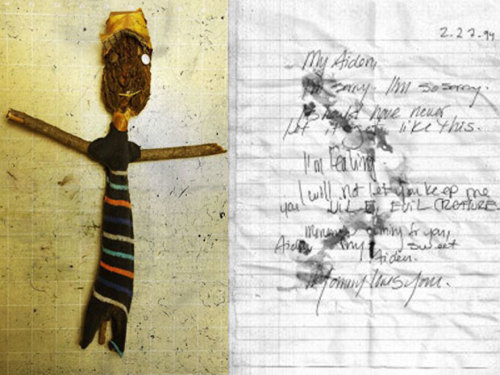 2.27.94
My Aiden,
I'm sorry. I'm so sorry.
I should have never
let it get like this.
I'm
I will not let you keep me
you VILE, EVIL CREATURE.
Mommy's coming for you,
Aiden my sweet
Aiden.
Mommy loves you.